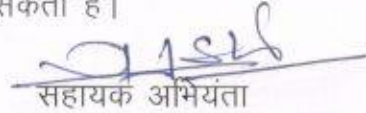 सकता है।
सहायक अभियंता